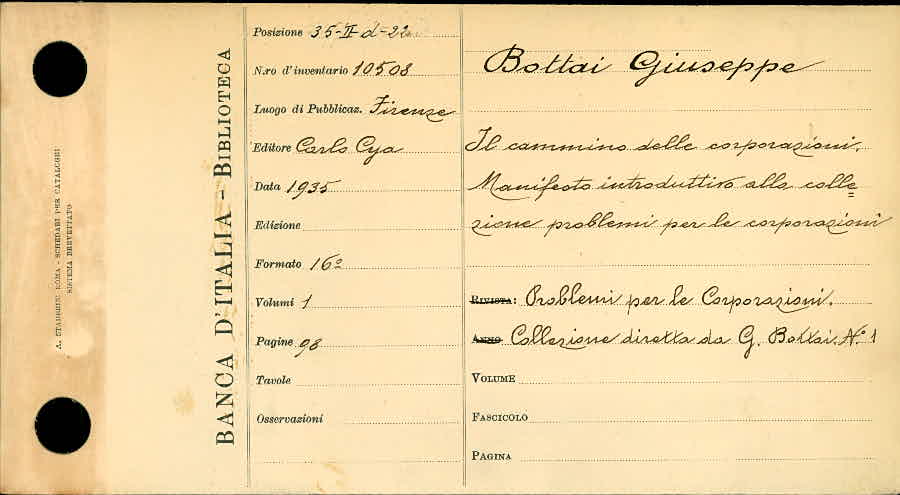 A. STADERINI ROMA - SCHEDARI PER CATALOGHI
SISTEMA BREVETTATO
BANCA D'ITALIA - BIBLIOTECA
Posizione 35-II-d-22
N.ro d'inventario 10508
Luogo di Pubblicaz. Firenze
Editore Carlo Cya
Data 1935
Edizione
Formato 16º
Volumi 1
Pagine 98
Tavole
Osservazioni
Bottai Giuseppe
Il cammino delle corporazioni.
Manifesto introduttivo alla colle=
zione problemi per le corporazioni
RIVISTA: Problemi per le Corporazioni.
ANNO Collezione diretta da G. Bottai. N.º 1
VOLUME
FASCICOLO
PAGINA